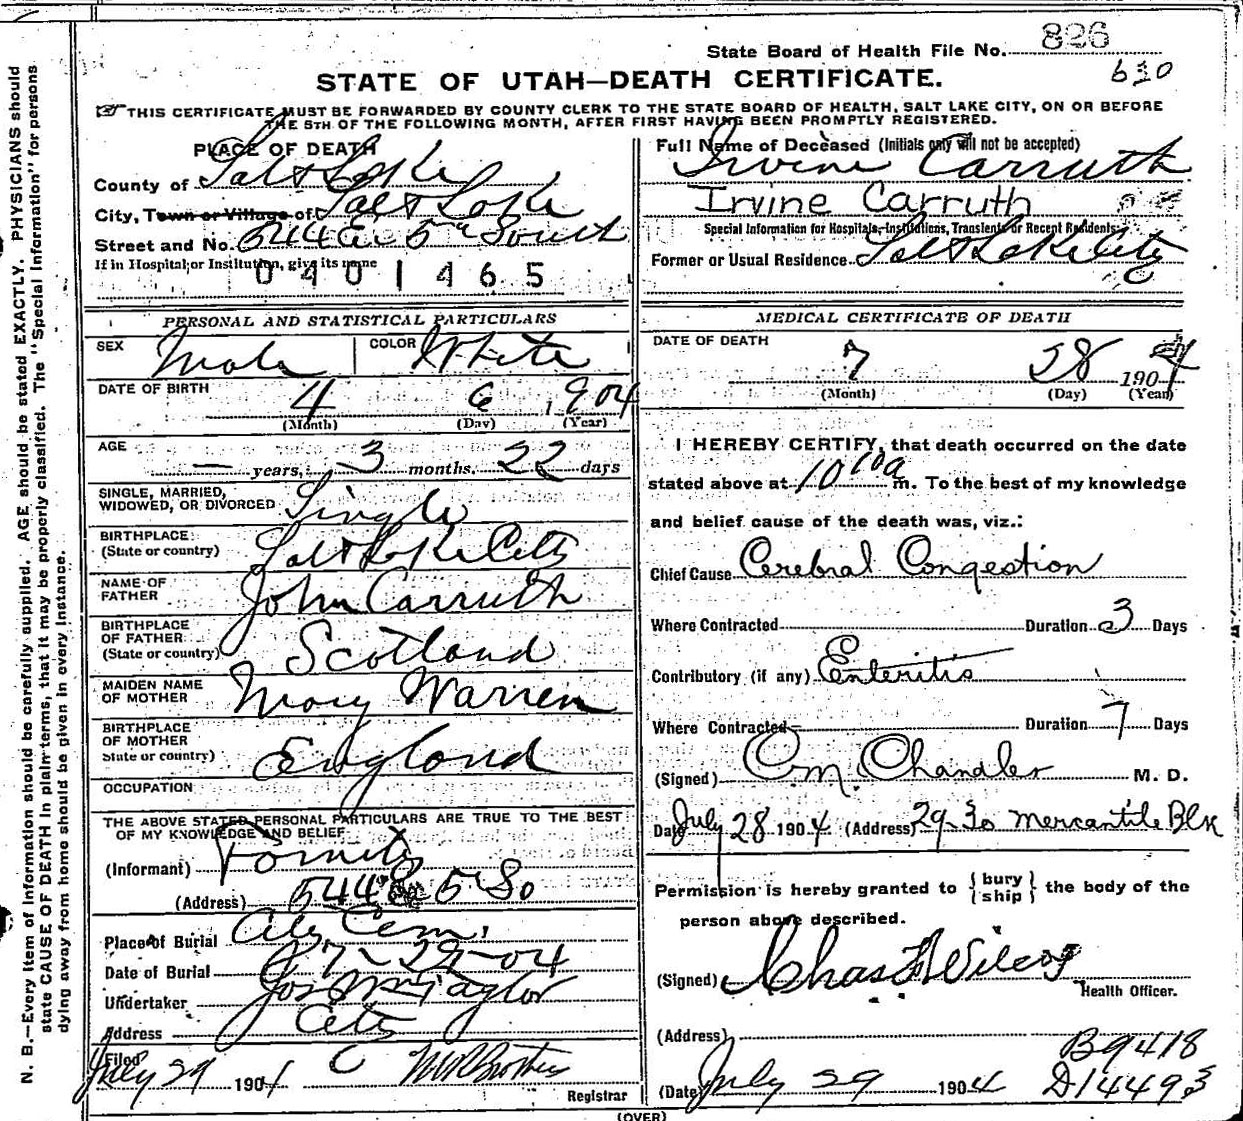 State Board of Health File No. 826
630
STATE OF UTAH—DEATH CERTIFICATE.
THIS CERTIFICATE MUST BE FORWARDED BY COUNTY CLERK TO THE STATE BOARD OF HEALTH, SALT LAKE CITY, ON OR BEFORE
THE 5TH OF THE FOLLOWING MONTH, AFTER FIRST HAVING BEEN PROMPTLY REGISTERED.
PLACE OF DEATH
County of Salt Lake
City, Town or Village of Salt Lake
Street and No. 544 E. 5th South
If in Hospital or Institution, give its name
0401465
Full Name of Deceased (Initials only will not be accepted)
Irvine Carruth
Irvine Carruth
Special Information for Hospitals, Institutions, Transients or Recent Residents:
Former or Usual Residence Salt Lake City
PERSONAL AND STATISTICAL PARTICULARS
SEX Male COLOR White
DATE OF BIRTH 4 6 1904
(Month) (Day) (Year)
AGE — years, 3 months. 22 days
SINGLE, MARRIED,
WIDOWED, OR DIVORCED Single
BIRTHPLACE:
(State or country) Salt Lake City
NAME OF
FATHER John Carruth
BIRTHPLACE
OF FATHER
(State or country) Scotland
MAIDEN NAME
OF MOTHER Mary Warren
BIRTHPLACE
OF MOTHER
State or country) England
OCCUPATION
THE ABOVE STATED PERSONAL PARTICULARS ARE TRUE TO THE BEST
OF MY KNOWLEDGE AND BELIEF
(Informant) Family
(Address) 544 E 5 So
Place of Burial City Cem.
Date of Burial 7-29-04
Undertaker Jos Wm Taylor
Address City
Filed
July 29 1904
Registrar
MEDICAL CERTIFICATE OF DEATH
DATE OF DEATH
7 28 1904
(Month) (Day) (Year)
I HEREBY CERTIFY, that death occurred on the date
stated above at 10 10a m. To the best of my knowledge
and belief cause of the death was, viz.:
Chief Cause Cerebral Congestion
Where Contracted Duration 3 Days
Contributory (if any) Enteritis
Where Contracted Duration 7 Days
(Signed) C. M. Chandler M. D.
Date July 28 1904 (Address) 29-30 Mercantile Blk
Permission is hereby granted to {bury
ship} the body of the
person above described.
(Signed) Chas F Wilcox
Health Officer.
(Address)
B9418
(Date) July 29 1904 D14493
(OVER)
N. B.—Every item of information should be carefully supplied. AGE should be stated EXACTLY. PHYSICIANS should
state CAUSE OF DEATH in plain terms, that it may be properly classified. The "Special Information" for persons
dying away from home should be given in every instance.